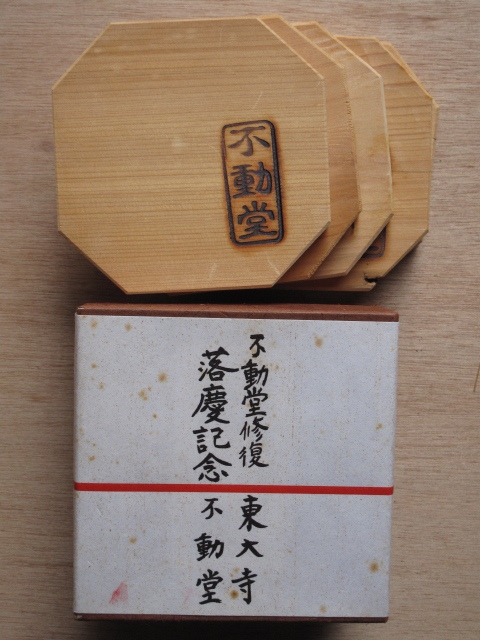 不動堂
不動堂修復
落慶記念
東大寺
不動堂